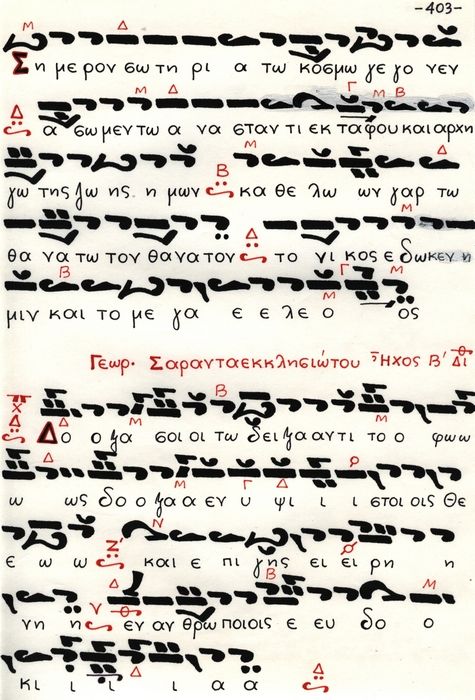 -403-
Ση με ρον σω τη ρι α τω κοσμω γε γο νεν
α σωμεν τω α να σταν τι εκ ταφου και αρχη
γω της ζω ης η μων κα θε λω ων γαρ τω
θα να τω τον θανατον το νι κος ε δωκεν η
μιν και το με γα ε ε λε ο ος
Γεωρ. Σαρανταεκκλησιώτου Ἦχος Β΄ Δι
Δο ο ξα σοι οι τω δειξα αντι το ο φωω
ω ως δο ο ξα α εν υ ψι ι ιστοι οις Θε
ε ω ω και ε πι γης ει ει ρη η
νη η εν αν θρω ποιοις ε ευ δο ο
κι ι ι ι α α